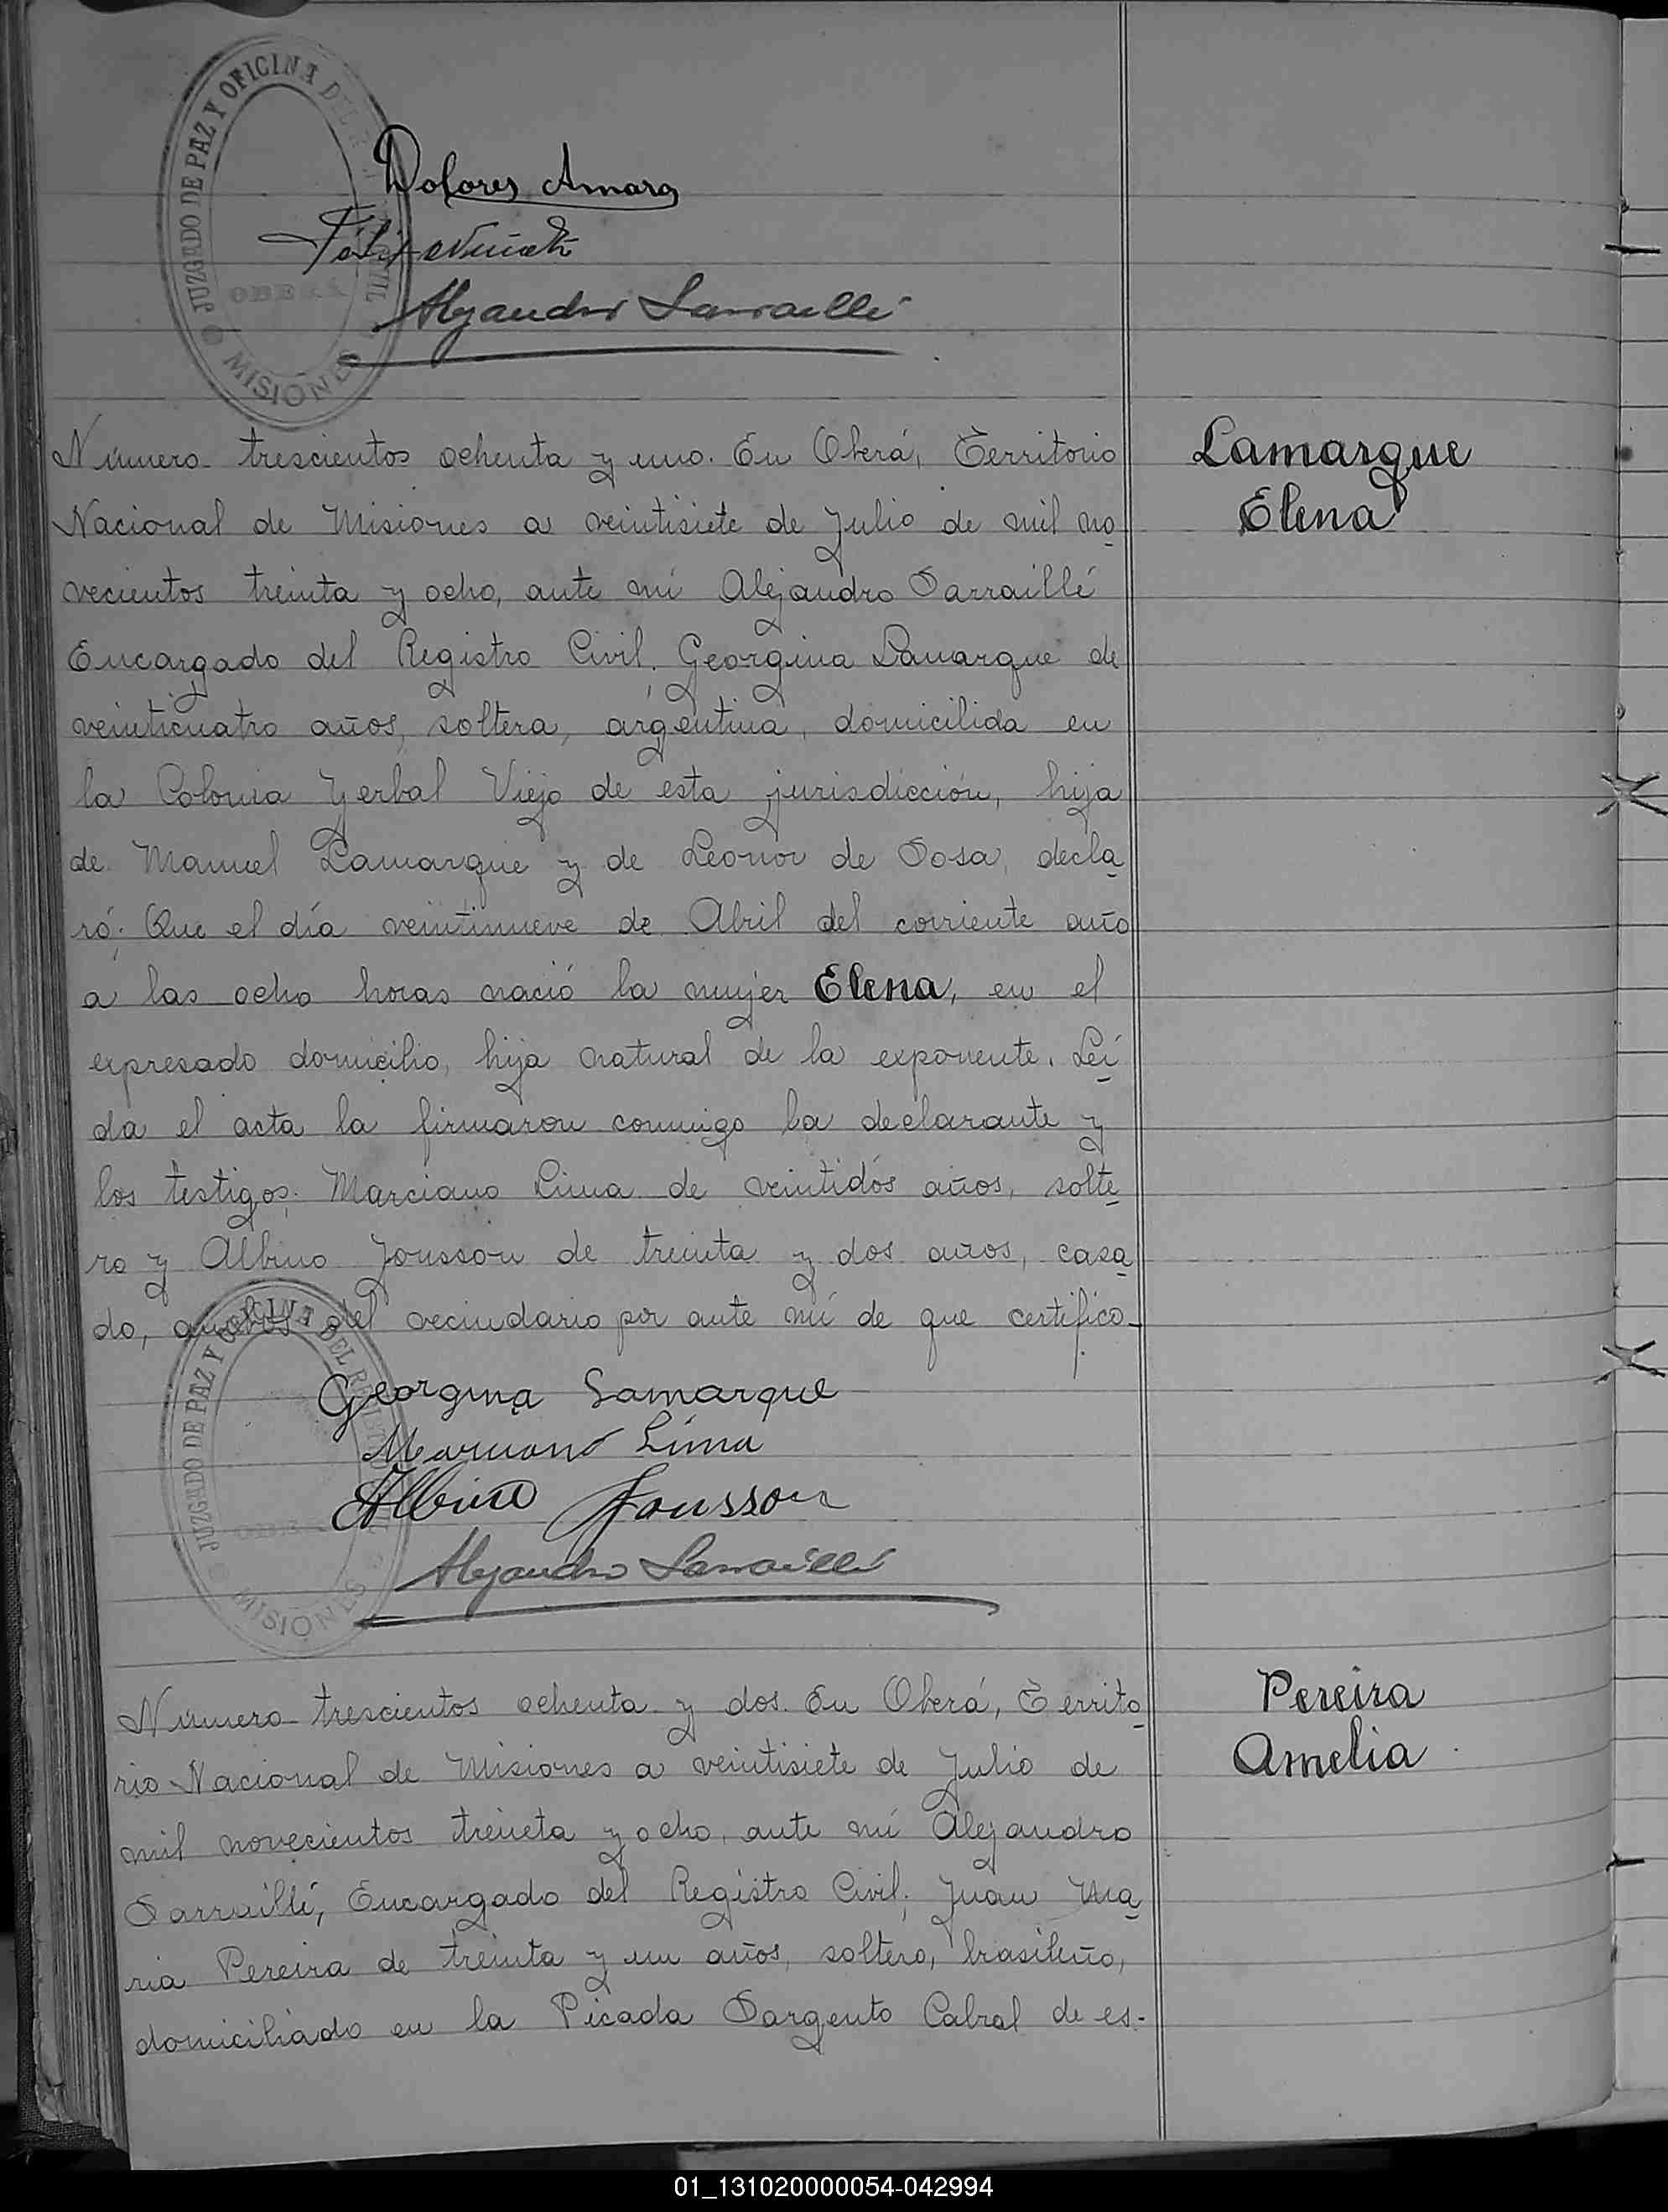 JUZGADO DE PAZ Y OFICINA DEL CIVIL
OBERÁ
MISIONES
Dolores Amara
Félix
Alejandro Sarraillé
Número trescientos ochenta y uno. En Oberá, Territorio
Lamarque
Elena
Nacional de Misiones a veintisiete de Julio de mil no
vecientos treinta y ocho, ante mí Alejandro Sarraillé
Encargado del Registro Civil; Georgina Lamarque de
veinticuatro años, soltera, argentina, domicilida en
la Colonia Yerbal Viejo de esta jurisdicción, hija
de Manuel Lamarque y de Leonor de Sosa, decla
ró; Que el día veintinueve de Abril del corriente año
a las ocho horas nació la mujer Elena, en el
expresado domicilio, hija natural de la exponente. Leí
da el acta la firmaron conmigo la declarante y
los testigos; Marciano Lima de veintidós años, solte
ro y Albino Jonsson de treinta y dos años, casa
do, ambos del vecindario por ante mí de que certifico
JUZGADO DE PAZ Y OFICINA DEL REGISTRO
MISIONES
Georgina Lamarque
Marciano Lima
Albino Jonsson
Alejandro Sarraillé
Número trescientos ochenta y dos. En Oberá, Territo
Pereira
Amelia
rio Nacional de Misiones a veintisiete de Julio de
mil novecientos treinta y ocho, ante mí Alejandro
Sarraillé, Encargado del Registro Civil; Juan Ma
ria Pereira de treinta y un años, soltero, brasileño,
domiciliado en la Picada Sargento Cabral de es-
01_131020000054-042994